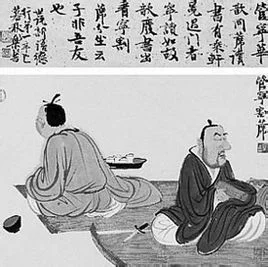 管寧華
歆同席讀
書有乘軒
冕過門者
寧讀如故
歆廢書出
看寧割
席分坐云
子非吾友
也
世說新語德
管寧割席